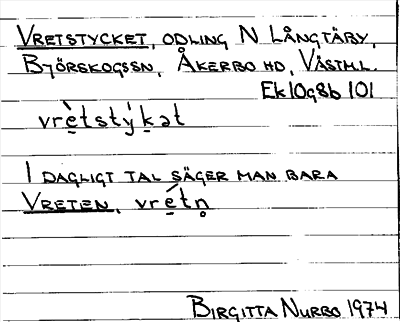 VRETSTYCKET, ODLING N LÅNGTÄBY,
BJÖRSKOGSSN, ÅKERBO HD, VÄSTML.
Ek 10g8b 101
vrè̱tstý̱k̮ət
I DAGLIGT TAL SÄGER MAN BARA
VRETEN, vré̱tn̥
BIRGITTA NURBO 1974